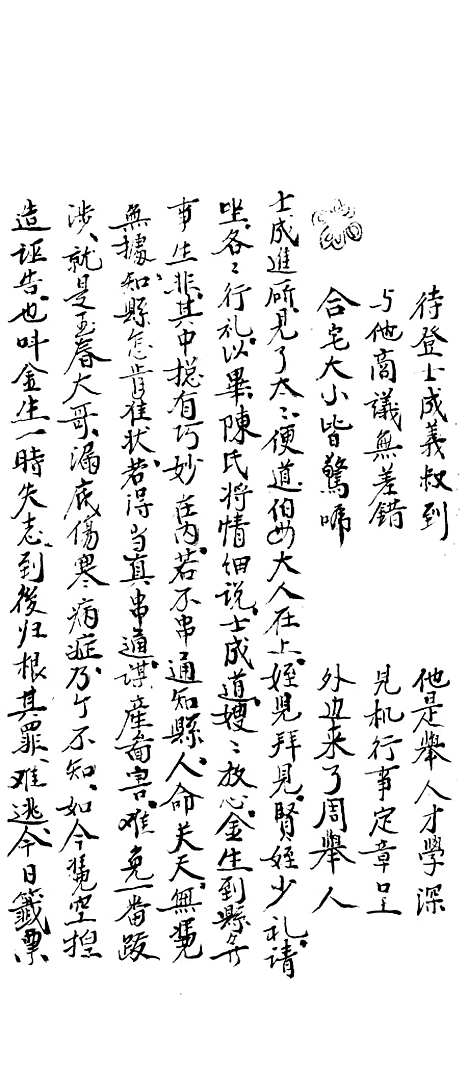 待登士成義叔到　他是舉人才學深
与他商議無差錯　見机行事定章呈
合宅大小皆驚唬　外边来了周舉人
士成進所、見了太二、便道、伯母大人在上、姪児拜見、賢姪少礼、請
坐、各二行礼、以畢、陳氏将情细説、士成道、嫂二放心、金生到縣
事生非、其中揔有巧妙在内、若不串通知縣、人命关天、無凴
無據、知縣怎肯准状、若得当真串通、謀産啚害、难免一番跋
涉、就是玉春大哥、漏底傷寒病症、乃个不知、如今凴空揑
造诬告、也叫金生一時失志、到後归根、其罪难逃、今日籤票